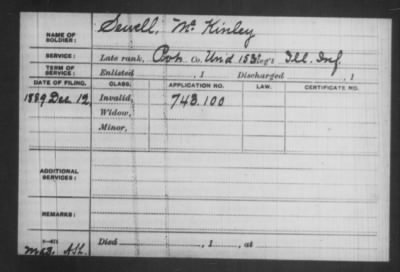 NAME OF SOLDIER: Sewell, Mc Kinley
SERVICE: Late rank, Pvt. Co. Un'd 153 Reg't Ill. Inf.
TERM OF SERVICE: Enlisted , 1 Discharged , 1
DATE OF FILING. CLASS. APPLICATION NO. LAW. CERTIFICATE NO.
1889 Dec 12 Invalid, 743.100
Widow,
Minor,
ADDITIONAL SERVICES:
REMARKS:
Died , 1 , at